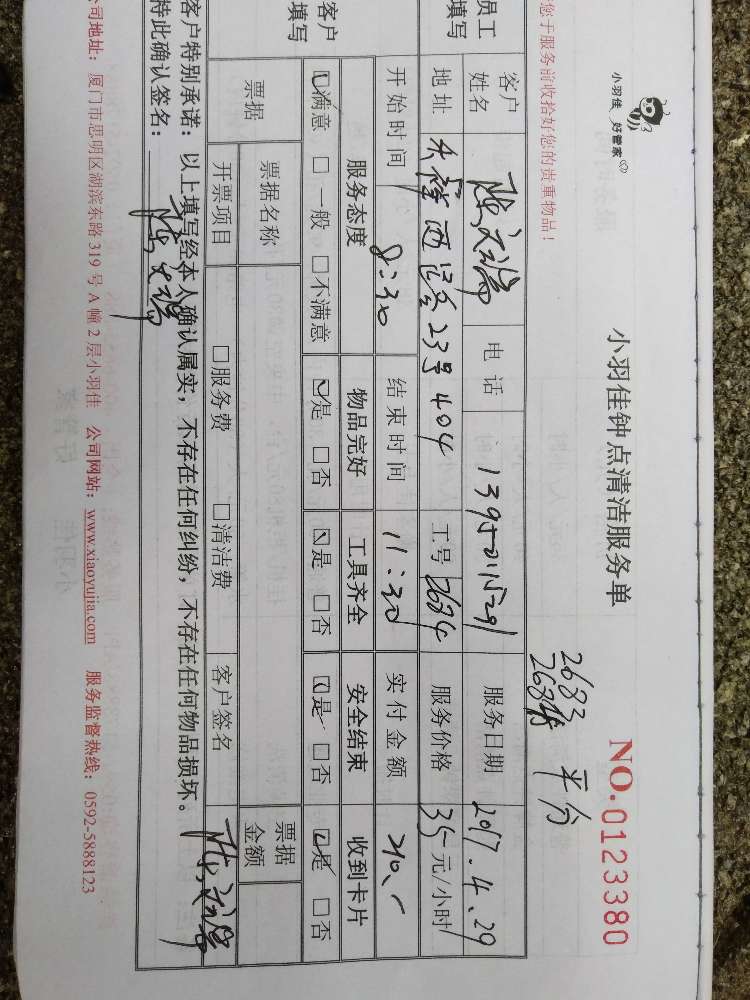 小羽佳 好管家
小羽佳钟点清洁服务单
NO.0123380
2683
2684 平分
您于服务前收拾好您的贵重物品！
员工填写
客户姓名 电话 服务日期 2017.4.29
地址 23号404 工号 2684 服务价格 35元/小时
开始时间 8:30 结束时间 11:30 实付金额 210.
客户填写
服务态度 物品完好 工具齐全 安全结束 收到卡片
☑满意 □一般 □不满意 ☑是 □否 ☑是 □否 ☑是 □否 ☑是 □否
票据
票据名称 票据金额
开票项目 □服务费 □清洁费 客户签名
客户特别承诺：以上填写经本人确认属实，不存在任何纠纷，不存在任何物品损坏。
特此确认签名：
公司地址：厦门市思明区湖滨东路319号A幢2层小羽佳 公司网站：www.xiaoyujia.com 服务监督热线：0592-5888123